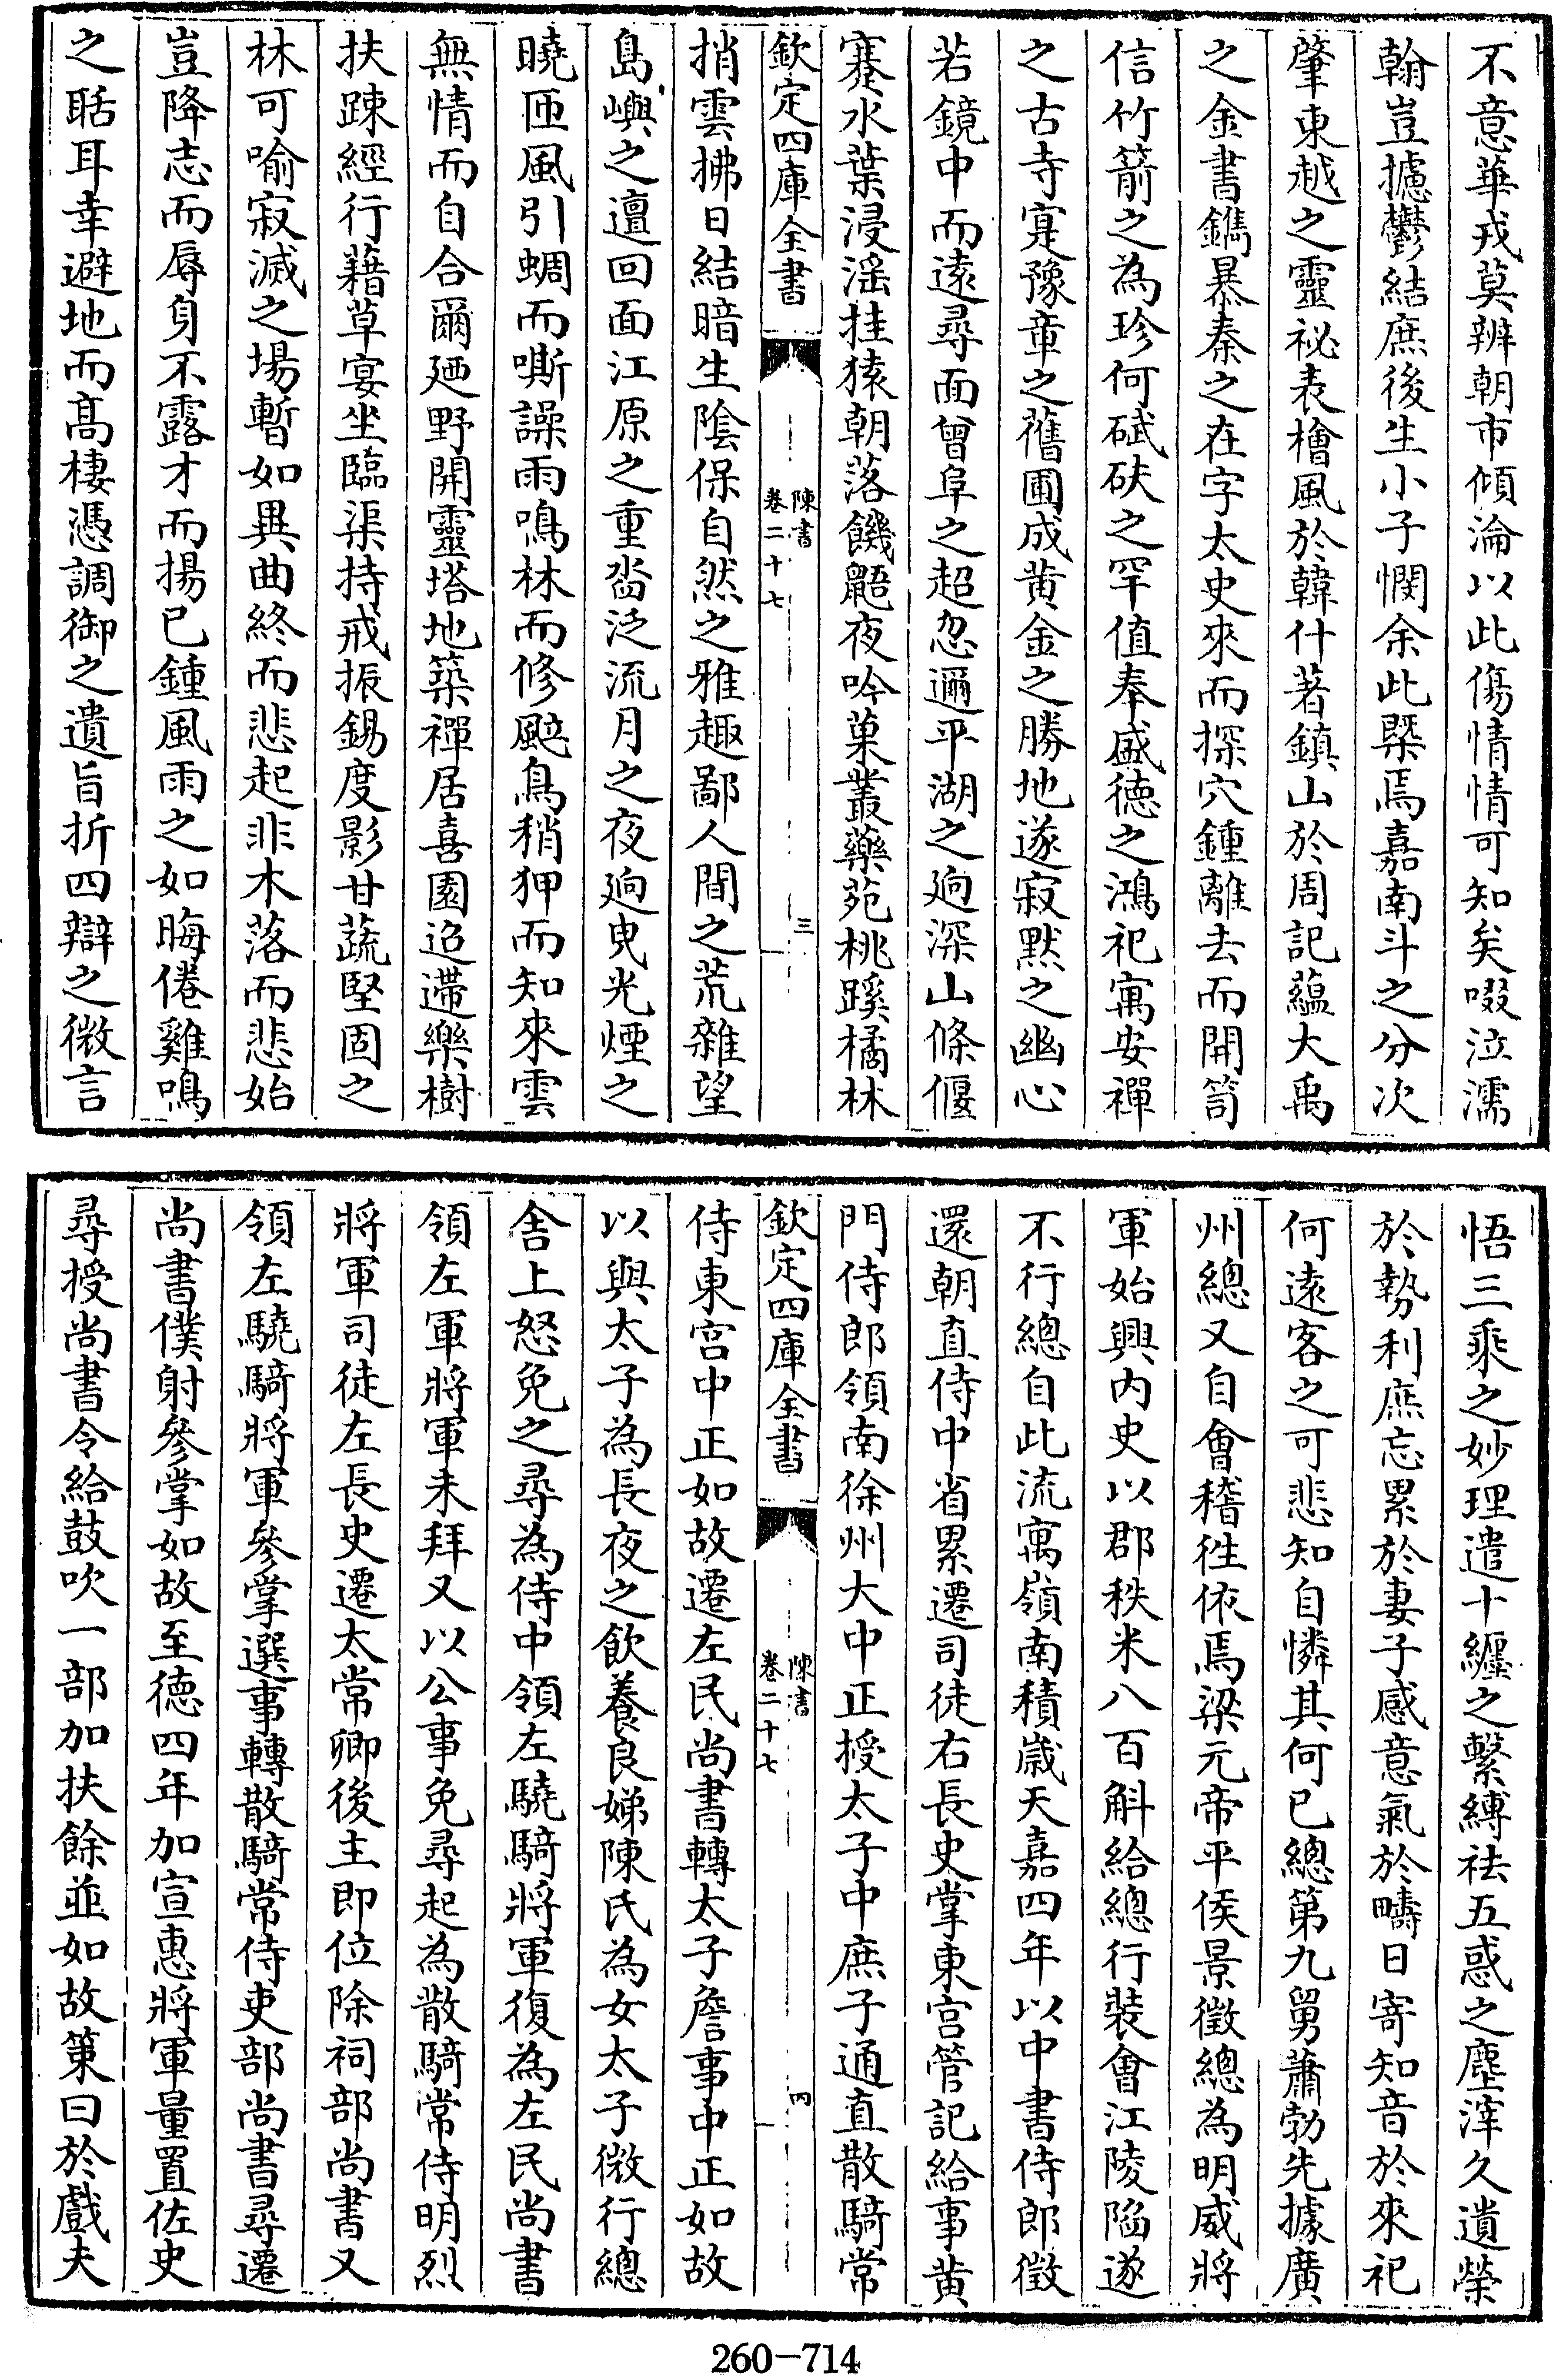 不意華戎莫辨朝市傾淪以此傷情情可知矣啜泣濡
翰豈攄鬱結庶後生小子憫余此槩焉嘉南斗之分次
肇東越之靈祕表檜風於韓什著鎮山於周記藴大禹
之金書鐫暴秦之在字太史來而探穴鍾離去而開笥
信竹箭之為珍何碔砆之罕值奉盛徳之鴻祀寓安禪
之古寺寔豫章之舊圃成黄金之勝地遂寂黙之幽心
若鏡中而逺尋面曾阜之超忽邇平湖之逈深山條偃
蹇水葉浸淫挂猿朝落饑鼯夜吟菓叢藥苑桃蹊橘林
欽定四庫全書
陳書
卷二十七
三
捎雲拂日結暗生隂保自然之雅趣鄙人間之荒雜望
島嶼之邅回面江原之重沓泛流月之夜逈曳光煙之
曉匝風引蜩而嘶譟雨鳴林而修颭鳥稍狎而知來雲
無情而自合爾廼野開靈塔地築禪居喜園迢遰樂樹
扶踈經行藉草宴坐臨渠持戒振錫度影甘蔬堅固之
林可喻寂滅之場暫如異曲終而悲起非木落而悲始
豈降志而辱身不露才而揚已鍾風雨之如晦倦雞鳴
之聒耳幸避地而高棲憑調御之遺旨折四辯之微言
悟三乘之妙理遣十纒之繫縛祛五惑之塵滓久遺榮
於勢利庶忘累於妻子感意氣於疇日寄知音於來祀
何逺客之可悲知自憐其何已總第九舅蕭勃先據廣
州總又自會稽徃依焉梁元帝平侯景徵總為明威將
軍始興内史以郡秩米八百斛給總行裝會江陵陷遂
不行總自此流寓嶺南積嵗天嘉四年以中書侍郎徵
還朝直侍中省累遷司徒右長史掌東宫管記給事黄
門侍郎領南徐州大中正授太子中庶子通直散騎常
欽定四庫全書
陳書
卷二十七
四
侍東宫中正如故遷左民尚書轉太子詹事中正如故
以與太子為長夜之飲養良娣陳氏為女太子微行總
舍上怒免之尋為侍中領左驍騎將軍復為左民尚書
領左軍將軍未拜又以公事免尋起為散騎常侍明烈
將軍司徒左長史遷太常卿後主即位除祠部尚書又
領左驍騎將軍參掌選事轉散騎常侍吏部尚書尋遷
尚書僕射參掌如故至徳四年加宣惠將軍量置佐史
尋授尚書令給鼓吹一部加扶餘並如故策曰於戲夫
260-714